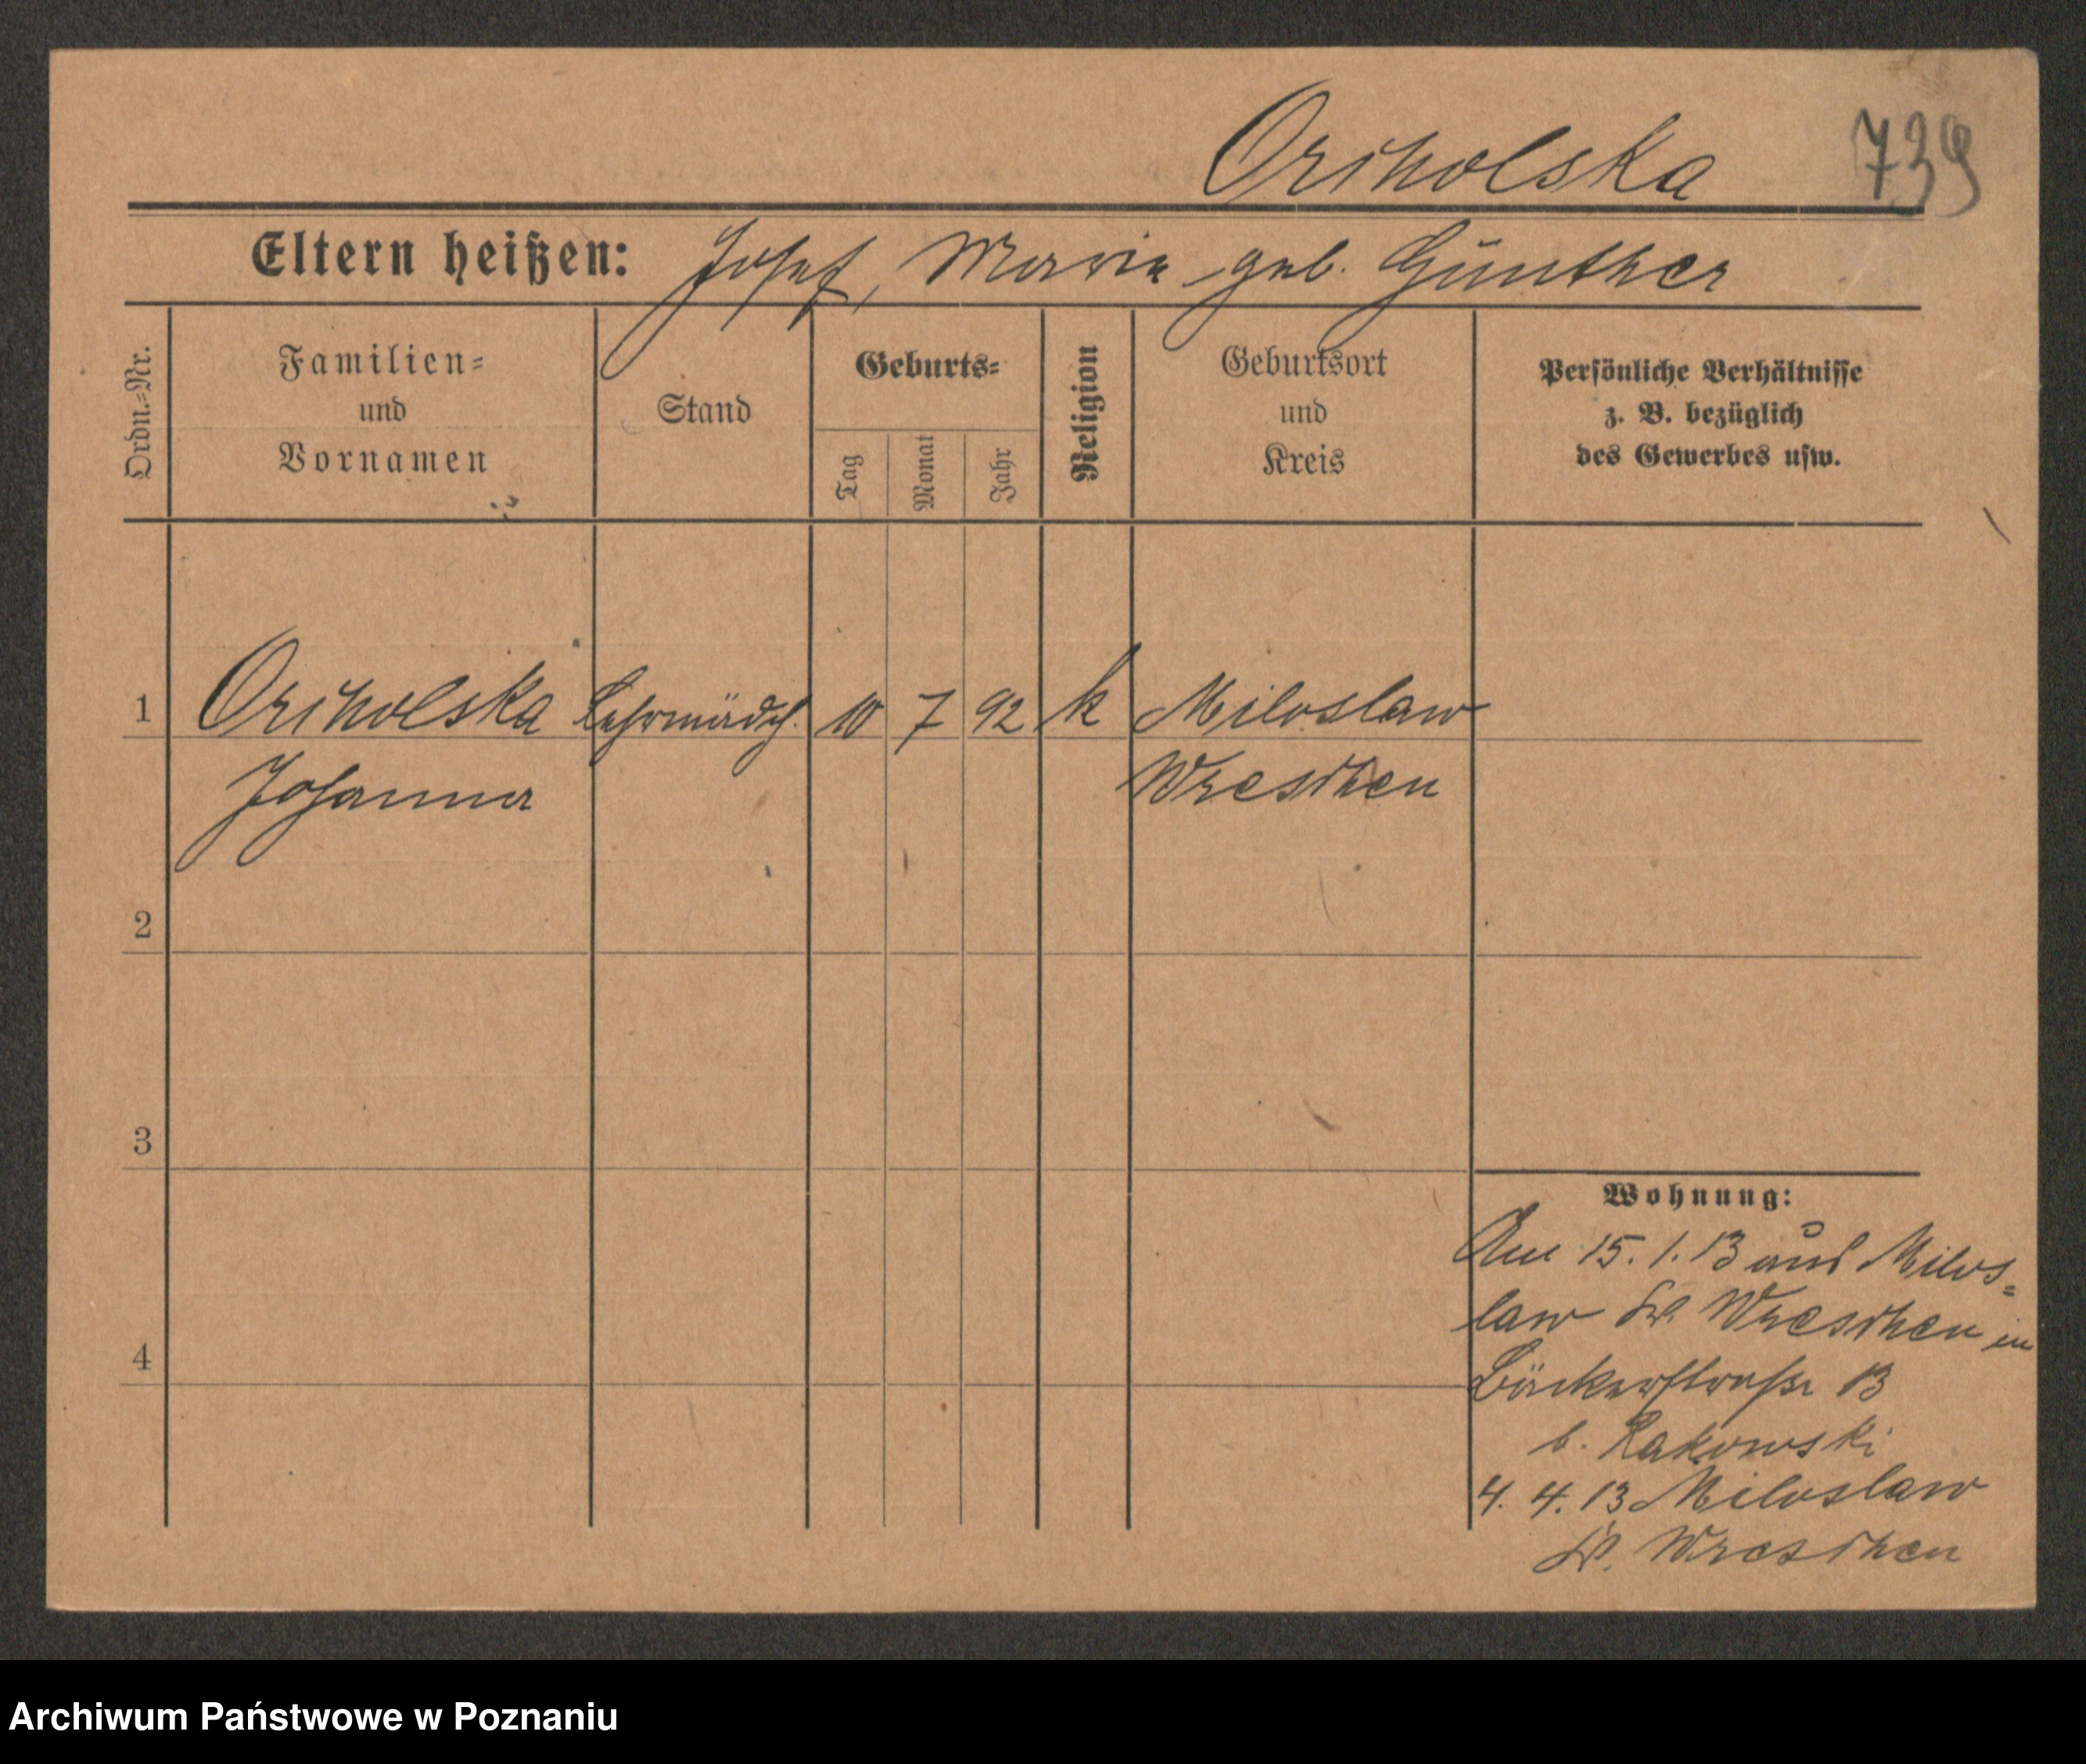 Orcholska
739
Eltern heißen: Josef, Maria geb. Günther
Ordn.=Nr.
Familien=
und
Vornamen
Stand
Geburts=
Tag
Monat
Jahr
Religion
Geburtsort
und
Kreis
Persönliche Verhältnisse
z. B. bezüglich
des Gewerbes usw.
1 Orcholska Lehrmädch. 10 7 92 k Miloslaw
Johanna Wreschen
2
3
4
Wohnung:
Am 15. 1. 13 aus Milos=
law Kr. Wreschen in
Bäckerstraße 13
b. Rakowski
4. 4. 13 Miloslaw
Kr. Wreschen
Archiwum Państwowe w Poznaniu